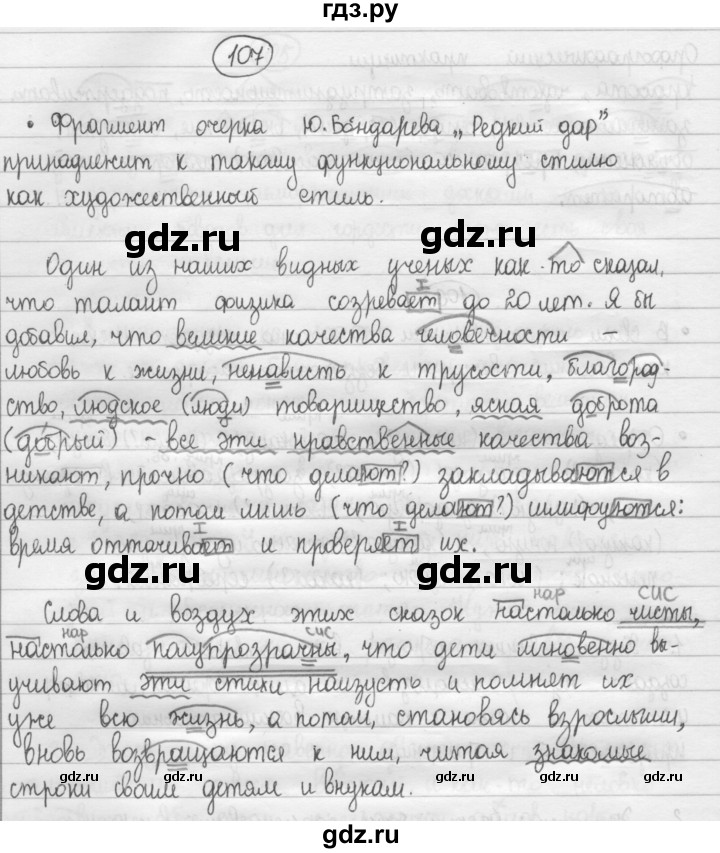 гдз.ру
107
• Фрагмент очерка Ю. Бондарева „Редкий дар"
принадлежит к такому функциональному стилю
как художественный стиль.
gdz.ru gdz.ru
Один из наших видных ученых как-то сказал,
что талант физика созревает до 20 лет. Я бы
добавил, что великие качества человечности –
любовь к жизни, ненависть к трусости, благород-
ство, людское (люди) товарищество, ясная доброта
(добрый) - все эти нравственные качества воз-
никают, прочно (что делают?) закладываются в
детстве, а потом лишь (что делают?) шлифуются:
время оттачивает и проверяет их.
gdz.ru gdz.ru
нар СИС
Слова и воздух этих сказок настолько чисты,
нар сис
настолько полупрозрачны, что дети мгновенно вы-
учивают эти стихи наизусть и помнят их
уже всю жизнь, а потом, становясь взрослыми,
вновь возвращаются к ним, читая знакомые
gdz.ru gdz.ru gdz.ru gdz.ru
строки своим детям и внукам.
gdz.ru